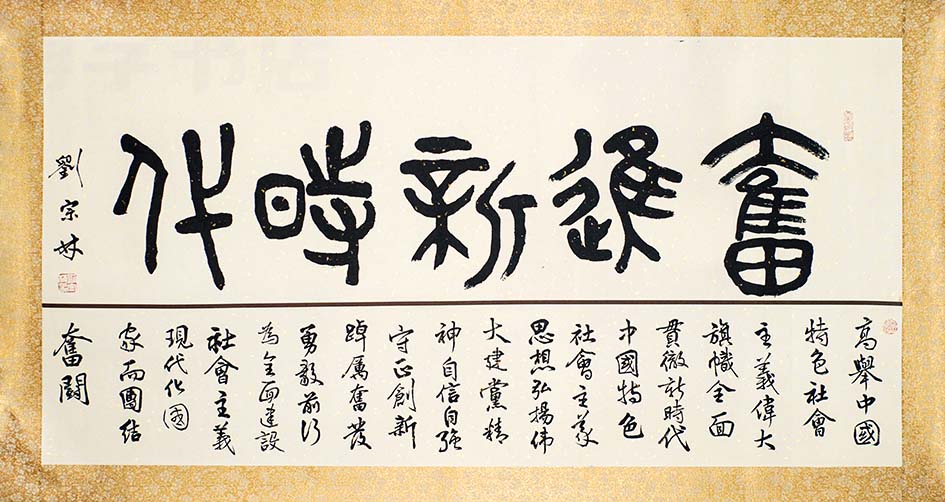 奮進新時代
劉宗
高舉中國
特色社會
主義偉大
旗幟全面
貫徹新時代
中國特色
社會主義
思想弘揚伟
大建黨精
神自信自强
守正創新
踔厲奮發
勇毅前行
為全面建設
社會主義
現代化國
家而團結
奮鬪